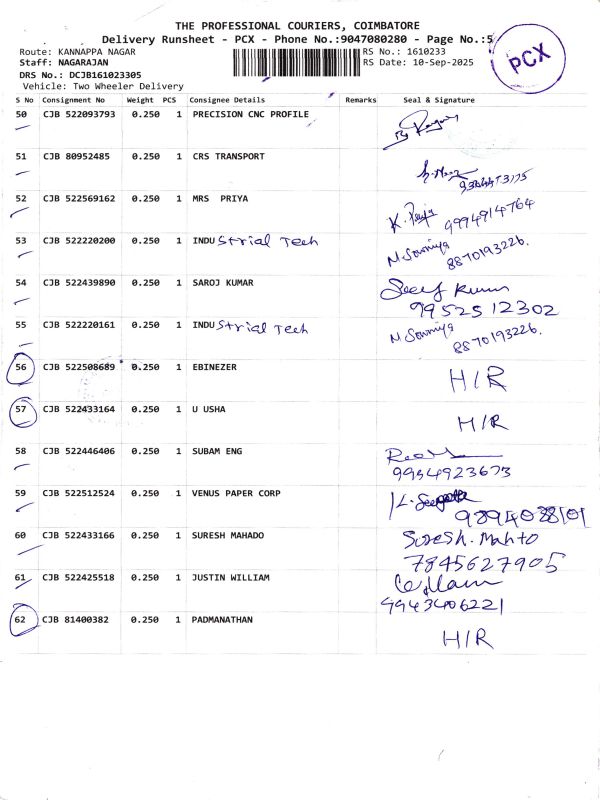 THE PROFESSIONAL COURIERS, COIMBATORE
Delivery Runsheet - PCX - Phone No.:9047080280 - Page No.:5
Route: KANNAPPA NAGAR
RS No.: 1610233
Staff: NAGARAJAN
RS Date: 10-Sep-2025
PCX
DRS No.: DCJB161023305
Vehicle: Two Wheeler Delivery
S No Consignment No Weight PCS Consignee Details Remarks Seal & Signature
50 CJB 522093793 0.250 1 PRECISION CNC PROFILE
51 CJB 80952485 0.250 1 CRS TRANSPORT
52 CJB 522569162 0.250 1 MRS PRIYA K. Priya
9994914764
53 CJB 522220200 0.250 1 INDUStrial Tech M. Sowmiya
8870193226.
54 CJB 522439890 0.250 1 SAROJ KUMAR
9952512302
55 CJB 522220161 0.250 1 INDUStrial Tech M. Sowmiya
8870193226.
56 CJB 522508689 0.250 1 EBINEZER H/R
57 CJB 522433164 0.250 1 U USHA H/R
58 CJB 522446406 0.250 1 SUBAM ENG
9994923673
59 CJB 522512524 0.250 1 VENUS PAPER CORP
9894088101
60 CJB 522433166 0.250 1 SURESH MAHADO Suresh. Mahto
7845627905
61 CJB 522425518 0.250 1 JUSTIN WILLIAM
9943406221
62 CJB 81400382 0.250 1 PADMANATHAN H/R